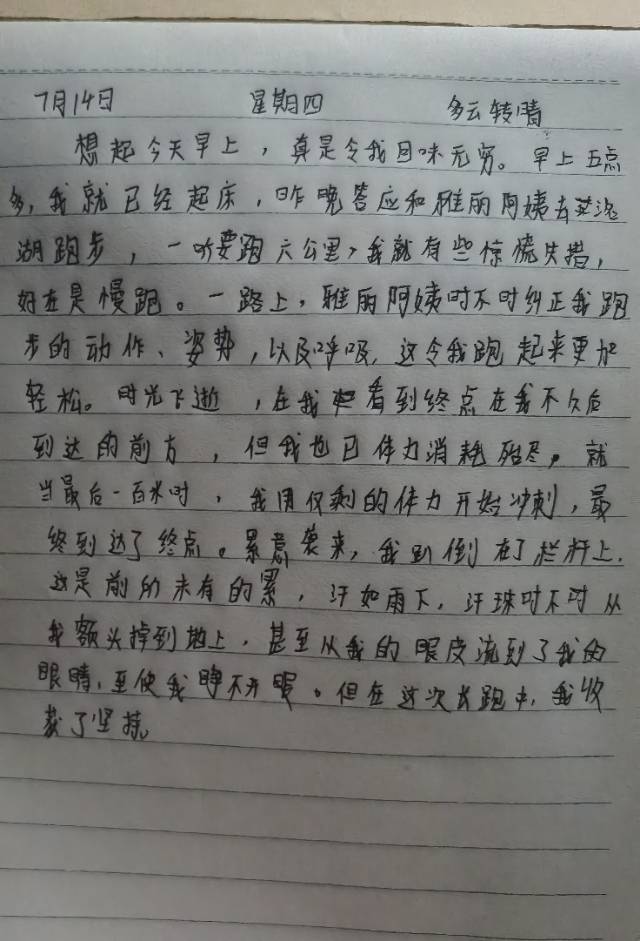 7月14日 星期四 多云转晴
想起今天早上，真是令我回味无穷。早上五点
多，我就已经起床，昨晚答应和雅丽阿姨去
湖跑步，一听要跑六公里，我就有些惊慌失措，
好在是慢跑。一路上，雅丽阿姨时不时纠正我跑
步的动作、姿势，以及呼吸，这令我跑起来更加
轻松。时光飞逝，在我看到终点在我不久后
到达的前方，但我也已体力消耗殆尽。就
当最后一百米时，我用仅剩的体力开始冲刺，最
终到达了终点。累意袭来，我趴倒在了栏杆上.
这是前所未有的累，汗如雨下，汗珠时不时从
我额头掉到地上，甚至从我的眼皮流到了我的
眼睛，至使我睁不开眼。但在这次长跑中，我收
获了坚持。